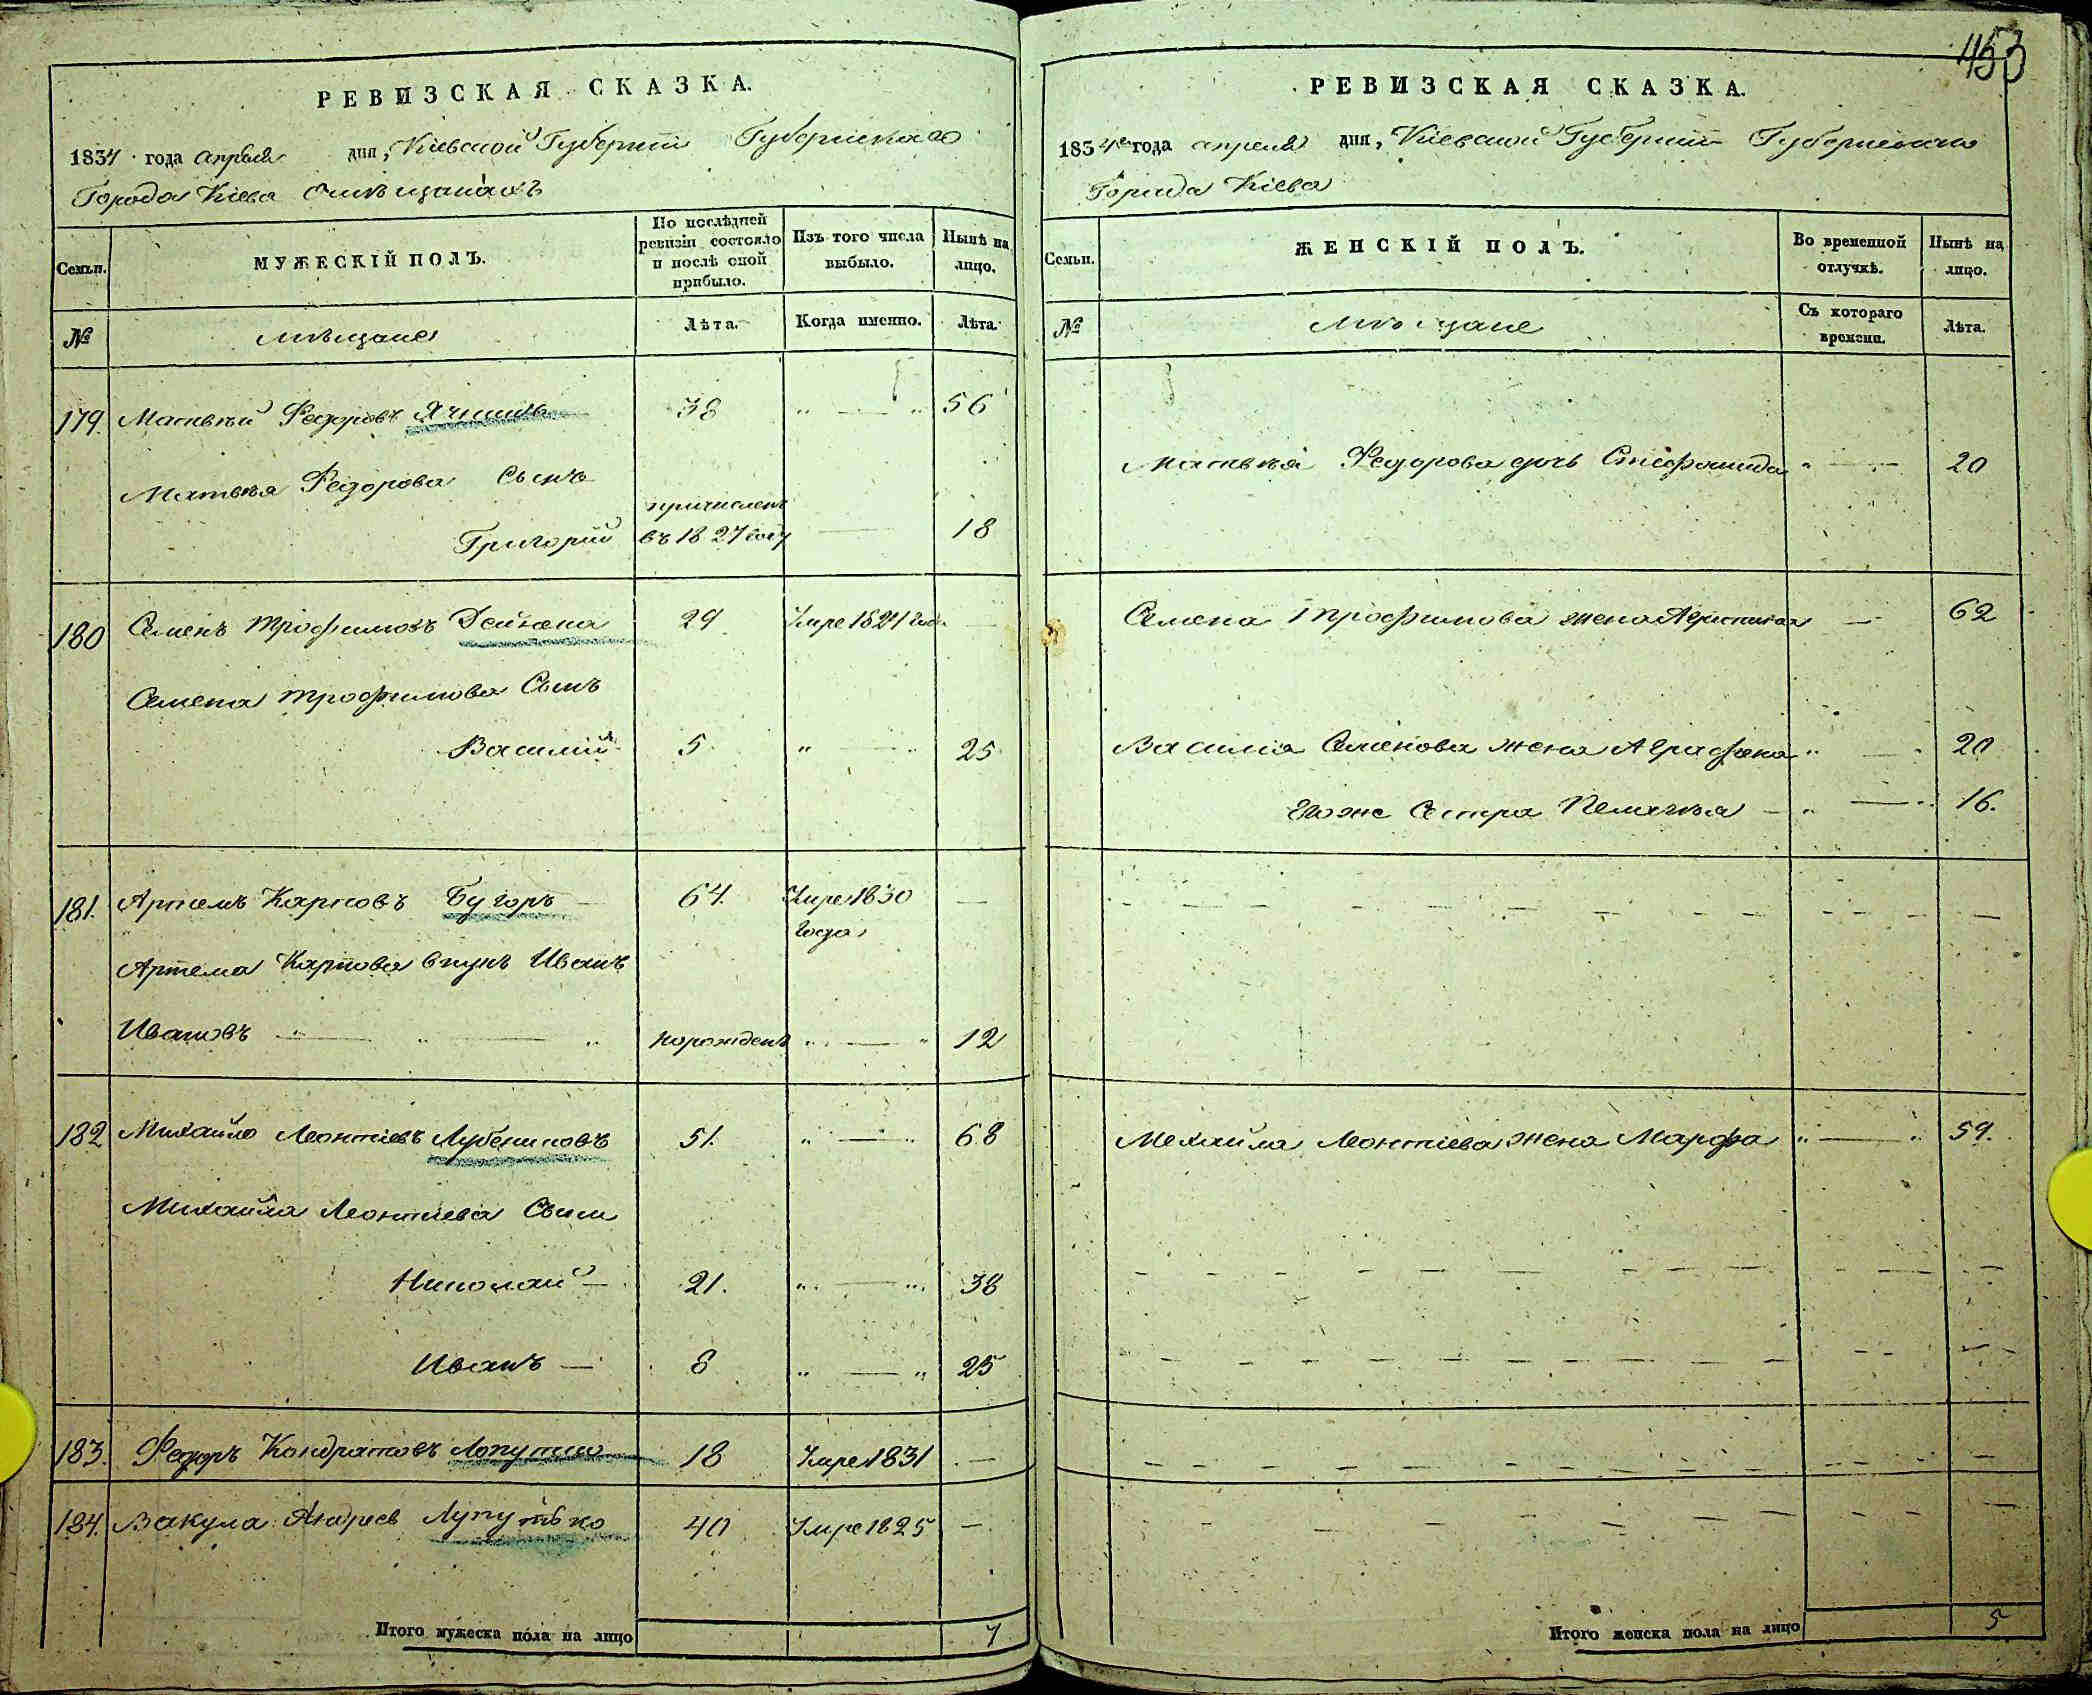 453
РЕВИЗСКАЯ СКАЗКА.
1834 года апреля дня, Кіевской Губерніи Губернскаго
Города Кіева о мѣщанахъ
Семьи.
МУЖЕСКІЙ ПОЛЪ.
По послѣдней ревизіи состояло и послѣ оной прибыло.
Изъ того числа выбыло.
Нынѣ на лицо.
№
мѣщане
Лѣта.
Когда именно.
Лѣта.
179. Матвѣй Федоровъ 38 " — " 56
Матвѣя Федорова Сынъ
причисленъ
Григорий въ 1827 году — 18
180 Семенъ Трофимовъ Дейнека 29 Умре 1824 года —
Семена Трофимова Сынъ
Василій 5 " — " 25
181. Артемъ Карповъ Бугоръ — 64. Умре 1830 —
года
Артема Карпова внукъ Иванъ
Ивановъ " — " — " норожденъ " — " 12
182 Михайло Леонтіевъ 51. " — " 68
Михайла Леонтіева Сыны
Николай — 21. " — " 38
Иванъ — 8 " — " 25
183. Федоръ Кондратовъ 18 Умре 1831 —
184. Вакула Андреев Лупутько 40 Умре 1825 —
Итого мужеска пола на лицо 7
РЕВИЗСКАЯ СКАЗКА.
1834го года апреля дня, Кіевской Губерніи Губернскаго
Города Кіева
Семьи.
ЖЕНСКІЙ ПОЛЪ.
Во временной отлучкѣ.
Нынѣ на лицо.
№
мѣщане
Съ котораго времени.
Лѣта.
Матвѣя Федорова дочь Стефанида " — 20
Семена Трофимова жена — 62
Василія Семенова жена Аграфена " — " 20
Егоже Сестра Пелагѣя — " — " 16.
Мехайла Леонтіева жена Марфа " — " 59.
Итого женска пола на лицо 5